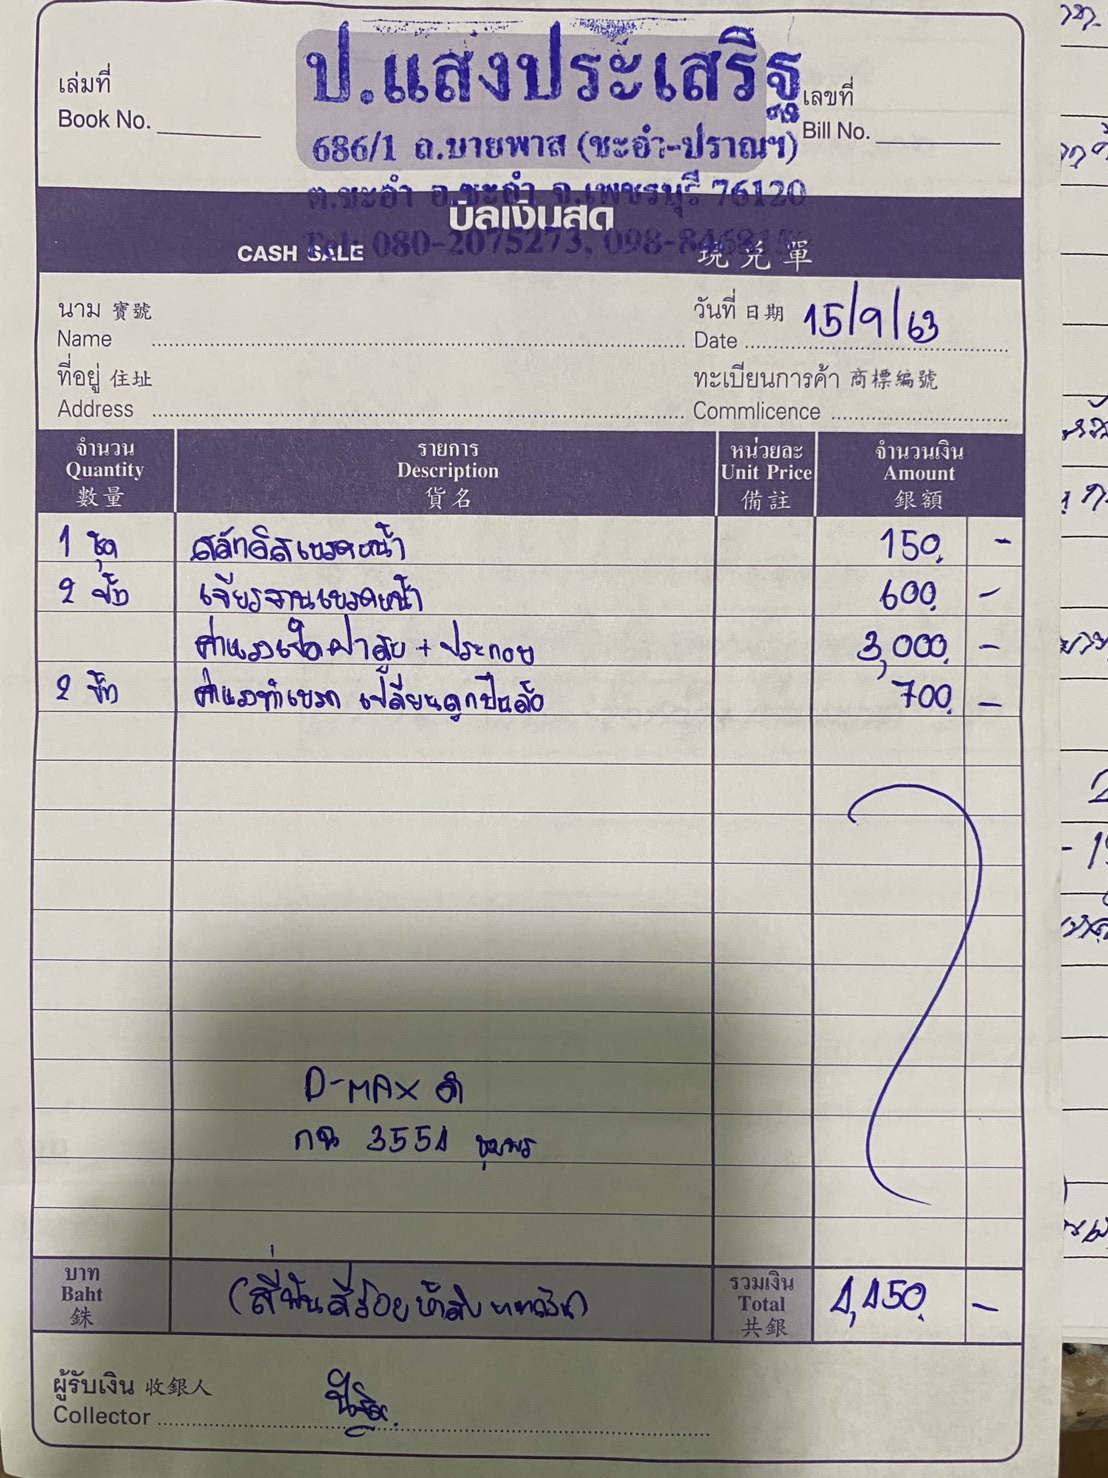 ป.แสงประเสริฐ
เล่มที่
Book No.
เลขที่
Bill No.
686/1 ถ.บายพาส (ชะอำ-ปราณฯ)
ต.ชะอำ อ.ชะอำ จ.เพชรบุรี 76120
บิลเงินสด
Tel: 080-2075273, 098-846815
CASH SALE 現兑單
นาม 寶號
Name
วันที่ 日期 15/9/63
Date
ที่อยู่ 住址
Address
ทะเบียนการค้า 商標編號
Commlicence
จำนวน รายการ หน่วยละ จำนวนเงิน
Quantity Description Unit Price Amount
數量 貨名 備註 銀額
1 ชุด สลักดิสเบรคหน้า 150 -
2 ข้าง เจียรจานเบรคหน้า 600 -
ค่าแรงเปิดฝาสูบ + ประกอบ 3,000 -
2 ข้าง ค่าแรงทำเบรค เปลี่ยนลูกปืนล้อ 700 -
D-MAX ดำ
กฉ 3554 ชุมพร
บาท
Baht
銖
(สี่พันสี่ร้อยห้าสิบบาทถ้วน)
รวมเงิน
Total
共銀
4,450 -
ผู้รับเงิน 收銀人
Collector